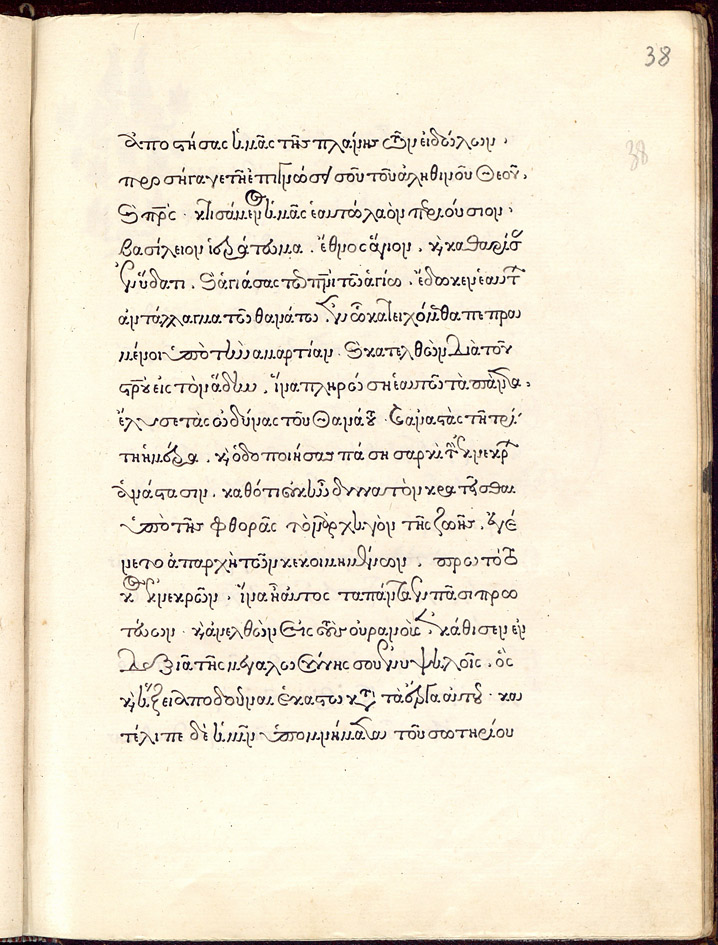 ἀποστήσας ἡμᾶς τῆς πλάνης τῶν εἰδώλων,
προσήγαγε τῇ ἐπιγνώσει σοῦ τοῦ ἀληθινοῦ Θεοῦ,
καὶ πρ̅ς· κτισάμενος ἡμᾶς ἑαυτῷ λαὸν περιούσιον,
βασίλειον ἱεράτευμα. ἔθνος ἅγιον. καὶ καθαρίσας
ἐν ὕδατι. καὶ ἁγιάσας τῷ πν̅ι τῷ ἁγίῳ. ἔδωκεν ἑαυτὸν
ἀντάλλαγμα τῷ θανάτῳ ἐν ᾧ κατειχόμεθα πεπρα
μένοι ὑπὸ τὴν ἁμαρτίαν. καὶ κατελθὼν διὰ τοῦ
στρ̅ου εἰς τὸν ἅδην. ἵνα πληρώσῃ ἑαυτῷ τὰ πάντα,
ἔλυσε τὰς ὀδύνας τοῦ θανάτου· καὶ ἀναστὰς τῇ τρί
τῃ ἡμέρᾳ. καὶ ὁδοποιήσας πάσῃ σαρκὶ τὴν ἐκ νεκρῶν
ἀνάστασιν. καθότι οὐκ ἦν δυνατὸν κρατεῖσθαι
ὑπὸ τῆς φθορᾶς τὸν ἀρχηγὸν τῆς ζωῆς. ἐγέ
νετο ἀπαρχὴ τῶν κεκοιμημένων. πρωτότο
κος ἐκ νεκρῶν. ἵνα ᾖ αὐτὸς τὰ πάντα ἐν πᾶσι πρω
τεύων. καὶ ἀνελθὼν εἰς τοὺς οὐρανοὺς ἐκάθισεν ἐν
δεξιᾷ τῆς μεγαλωσύνης σου ἐν ὑψηλοῖς. ὃς
καὶ ἥξει ἀποδοῦναι ἑκάστῳ κατὰ τὰ ἔργα αὐτοῦ. κα
τέλιπε δὲ ἡμῖν ὑπομνήματα τοῦ σωτηρίου
38
38